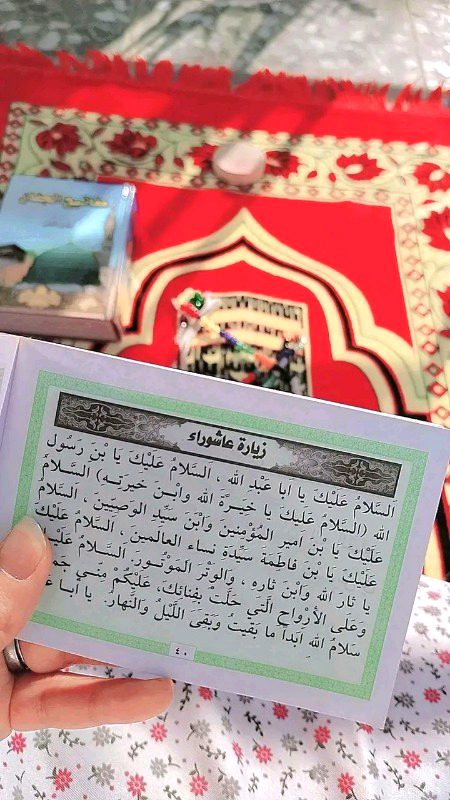 مفاتيح الجنان
زيارة عاشوراء
اَلسَّلامُ عَلَيْكَ يا اَبا عَبْدِ اللهِ ، اَلسَّلامُ عَلَيْكَ يَا بْنَ رَسُولِ
اللهِ (السَّلامُ عَليكَ يا خِيَرَةَ اللهِ وابْنَ خيرتِه) اَلسَّلامُ
عَلَيْكَ يَا بْنَ اَميرِ المُؤْمِنينَ وَابْنَ سَيِّدِ الوَصِيّينَ ، اَلسَّلامُ
عَلَيْكَ يَا بْنَ فاطِمَةَ سَيِّدَةِ نِساءِ العالَمينَ ، اَلسَّلامُ عَلَيْكَ
يا ثارَ اللهِ وَابْنَ ثارِهِ ، وَالوِتْرَ المَوْتُورَ. اَلسَّلامُ عَلَيْكَ
وَعَلَى الأرْواحِ الَّتي حَلَّتْ بِفِنائِكَ، عَلَيْكُمْ مِنّي
سَلامُ اللهِ اَبَداً ما بَقيتُ وَبَقِيَ اللَّيْلُ وَالنَّهارُ. يا اَبا
٤٠